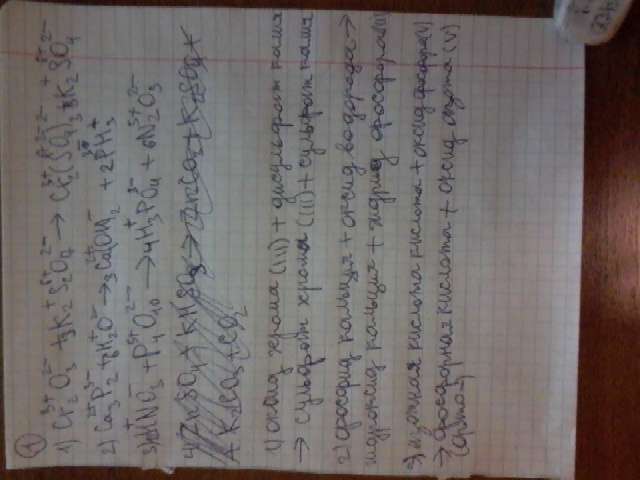 ①
1) Cr₂O₃ + 3K₂S₂O₇ → Cr₂(SO₄)₃ + 3K₂SO₄
2) Ca₃P₂ + 6H₂O → 3Ca(OH)₂ + 2PH₃
3) HNO₃ + P₄O₁₀ → 4H₃PO₄ + 6N₂O₅
4) ZnSO₄ + KHSO₃ → ZnCO₃ + K₂SO₄ +
+ K₂CO₃ + CO₂
1) оксид хрома (III) + дисульфат калия
→ сульфат хрома (III) + сульфат калия
2) фосфид кальция + оксид водорода →
гидроксид кальция + гидрид фосфора (III)
3) азотная кислота кислота + оксид фосфора (V)
→ фосфорная кислота + оксид азота (V)